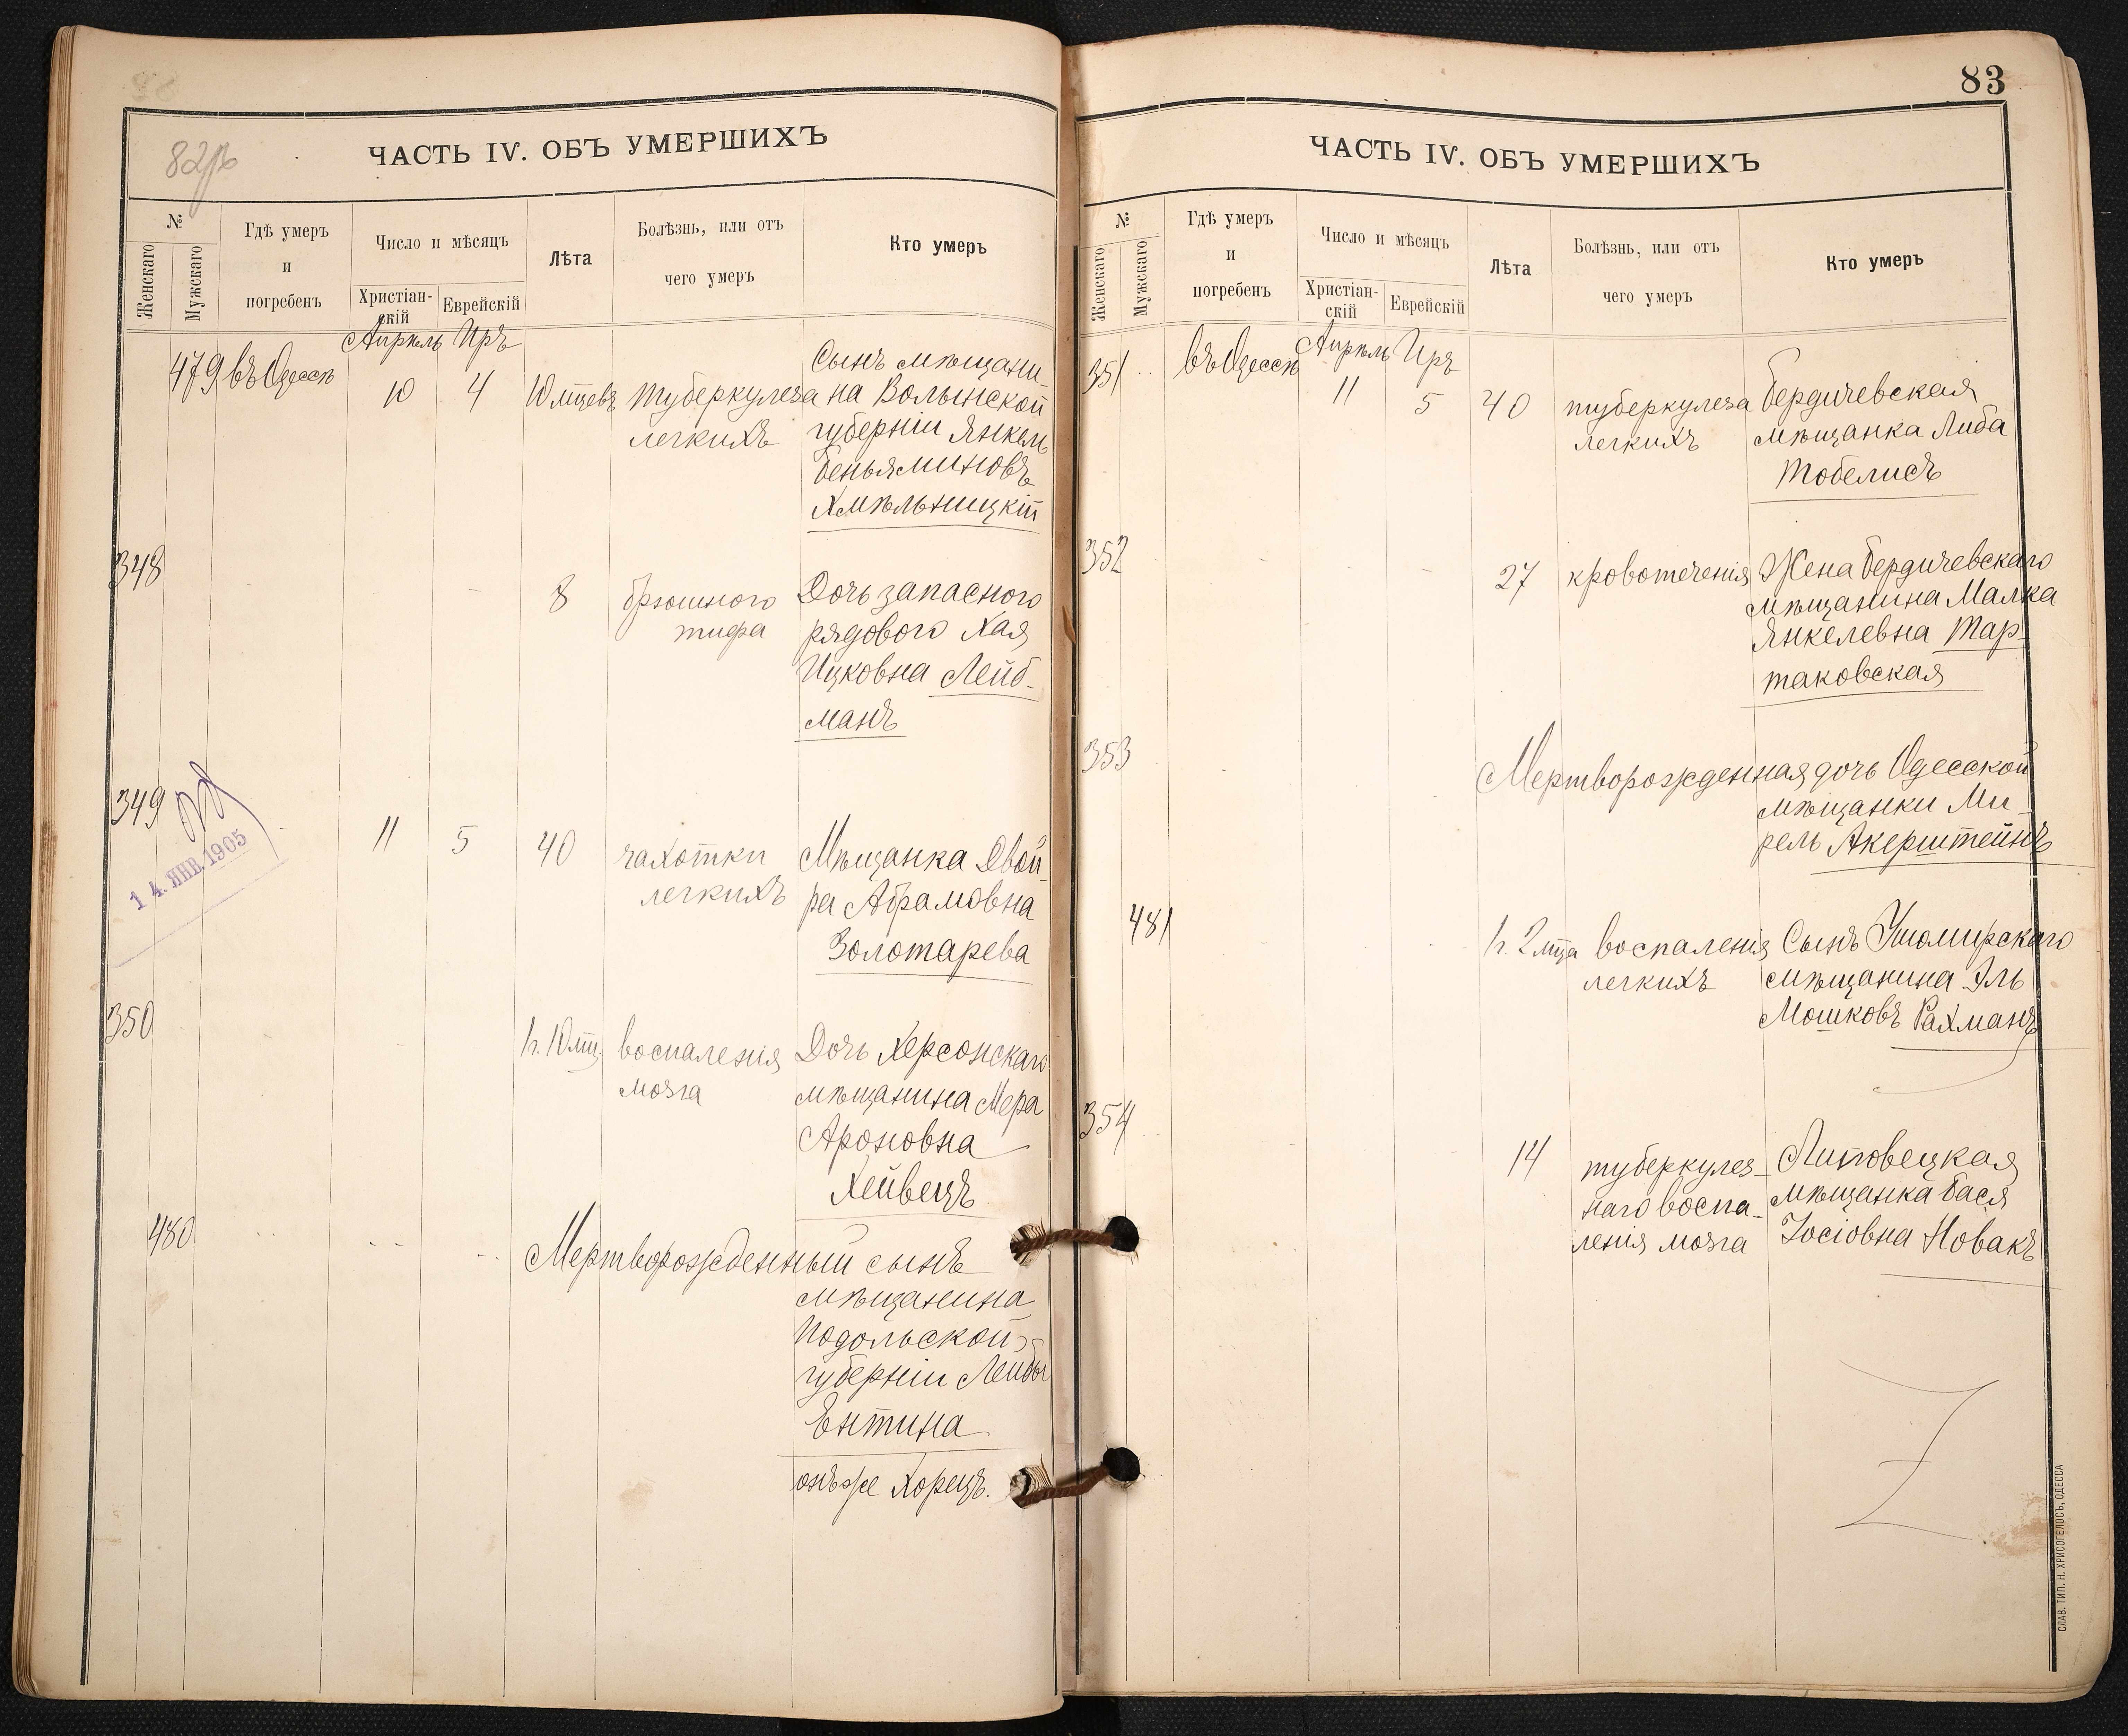 82об
ЧАСТЬ IV. ОБЪ УМЕРШИХЪ
№
Женскаго
Мужскаго
Гдѣ умеръ
и
погребенъ
Число и мѣсяцъ
Христіан-
скій
Еврейскій
Лѣта
Болѣзнь, или отъ
чего умеръ
Кто умеръ
Апрѣль Иръ
479 въ Одессѣ 10 4 10 мцевъ
туберкулеза
легкихъ
Сынъ мѣщани-
на Волынской
губерніи Янкель
Беньяминовъ
Хмѣльницкій
348
8
брюшного
тифа
Дочь запасного
рядового Хая
Ицковна Лейб-
манъ
349
14. ЯНВ. 1905
11 5 40
чахотки
легкихъ
Мѣщанка Двой-
ра Абрамовна
Золотарева
350
1 г. 10 мц.
воспаленія
мозга
Дочь Херсонскаго
мѣщанина Мера
Ароновна
Хейвецъ
480
Мертворожденный сынъ
мѣщанина
Подольской
губерніи Лейбы
Ентина
онъ же Хорецъ.
83
ЧАСТЬ IV. ОБЪ УМЕРШИХЪ
№
Женскаго
Мужскаго
Гдѣ умеръ
и
погребенъ
Число и мѣсяцъ
Христіан-
скій
Еврейскій
Лѣта
Болѣзнь, или отъ
чего умеръ
Кто умеръ
Апрѣль Иръ
351 въ Одессѣ 11 5 40
туберкулеза
легкихъ
Бердичевская
мѣщанка Либа
Тобелисъ
352
27
кровотеченія
Жена Бердичевскаго
мѣщанина Малка
Янкелевна Тар-
таковская
353
Мертворожденная дочь Одесской
мѣщанки Ми-
рель Акерштейнъ
481
1 г. 2 мца
воспаленія
легкихъ
Сынъ Ушомирскаго
мѣщанина Эль
Мошковъ Рахманъ
354
14
туберкулез-
наго воспа-
ленія мозга
Липовецкая
мѣщанка Бася
Іосіовна Новакъ
СЛАВ. ТИП. Н. ХРИСОГЕЛОСЪ, ОДЕССА